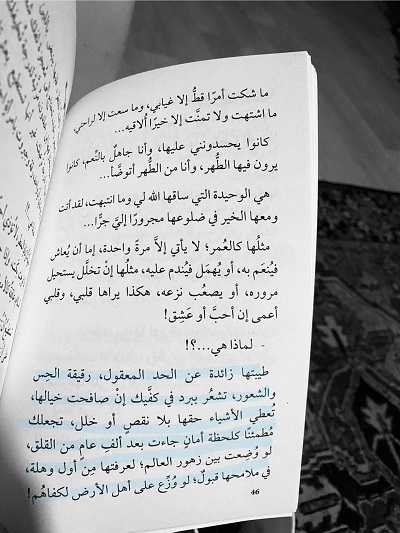 ما شكت أمرًا قطُّ إلا غيابي، وما سعت إلا لراحتي
ما اشتهت ولا تمنَّت إلا خيرًا أُلاقيه...
كانوا يحسدونني عليها، وأنا جاهلٌ بالنِّعم، كانوا
يرون فيها الطُّهر، وأنا من الطُّهر أتوضَّأ...
هي الوحيدة التي ساقها الله لي وما انتبهت، لقد أتت
ومعها الخير في ضلوعها مجرورًا إليَّ جرًّا...
مثلُها كالعُمر؛ لا يأتي إلَّا مرةً واحدة، إما أن يُعاش
فيُنْعَم به، أو يُهمَل فيُندم عليه، مثلُها إنْ تخلَّل يستحيل
مروره، أو يصعُب نزعه، هكذا يراها قلبي، وقلبي
أعمى إن أحبَّ أو عَشِق!
- لماذا هي...؟!
طيبتها زائدة عن الحد المعقول، رقيقة الحِس
والشعور، تشعُر ببرد في كفَّيك إنْ صافحت خيالها،
تُعطي الأشياء حقها بلا نقصٍ أو خلل، تجعلك
مُطمئنًا كلحظة أمانٍ جاءت بعد ألفِ عامٍ من القلق،
لو وُضِعت بين زهور العالم؛ لعرفتها مِن أول وهلة،
في ملامحها قبولٌ؛ لو وُزِّع على أهل الأرض لكفاهُم!
46